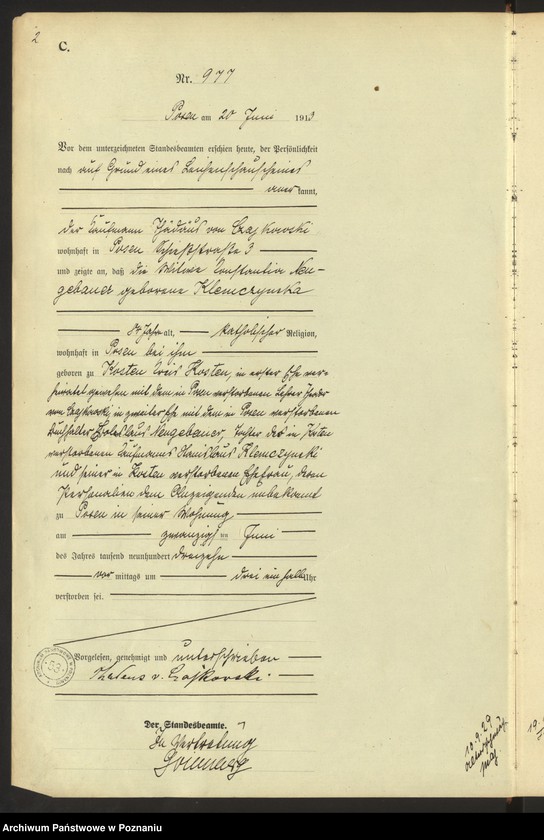 2
C.
Nr. 977
Posen am 20 Juni 1913
Vor dem unterzeichneten Standesbeamten erschien heute, der Persönlichkeit
nach auf Grund eines Leichenschauscheines
anerkannt,
der Kaufmann Thadäus von Czajkowski
wohnhaft in Posen Schießstraße 3
und zeigte an, daß die Witwe Constantia Neu-
gebauer geborene Klemczynska
Jahr alt, katholischer Religion,
wohnhaft in Posen bei ihm
geboren zu Kosten Kreis Kosten, in erster Ehe ver-
heiratet gewesen mit dem in Posen verstorbenen Lehrer
von Czajkowski in zweiter Ehe mit dem in Posen verstorbenen
Buchhalter Boleslaus Neugebauer, Tochter des in Kosten
verstorbenen Kaufmanns Stanislaus Klemczynski
und seiner in Kosten verstorbenen Ehefrau, deren
Personalien dem Anzeigenden unbekannt
zu Posen in seiner Wohnung
am zwanzigsten Juni
des Jahres tausend neunhundert dreizehn
vor mittags um drei ein halb Uhr
verstorben sei.
Vorgelesen, genehmigt und unterschrieben
v. Czajkowski
Der Standesbeamte.
In Vertretung
53
10.9.29
19.
Archiwum Państwowe w Poznaniu